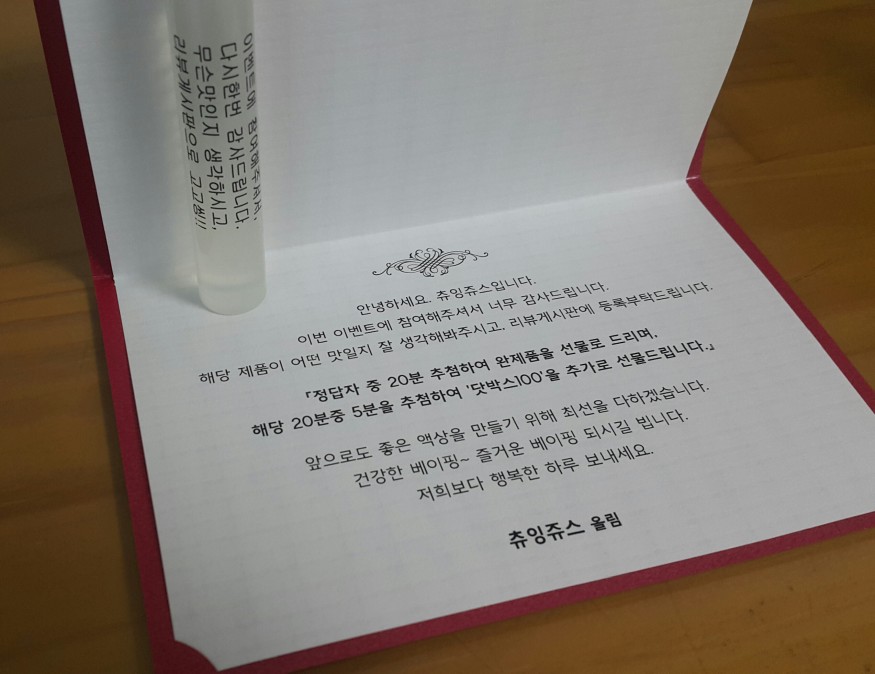 이벤트에 참여해주셔서,
다시한번 감사드립니다.
무슨맛인지 생각하시고,
리뷰게시판으로 고고씽!!
안녕하세요. 츄잉쥬스입니다.
이번 이벤트에 참여해주셔서 너무 감사드립니다.
해당 제품이 어떤 맛일지 잘 생각해봐주시고, 리뷰게시판에 등록부탁드립니다.
『정답자 중 20분 추첨하여 완제품을 선물로 드리며,
해당 20분중 5분을 추첨하여 '닷박스100'을 추가로 선물드립니다.』
앞으로도 좋은 액상을 만들기 위해 최선을 다하겠습니다.
건강한 베이핑~ 즐거운 베이핑 되시길 빕니다.
저희보다 행복한 하루 보내세요.
츄잉쥬스 올림